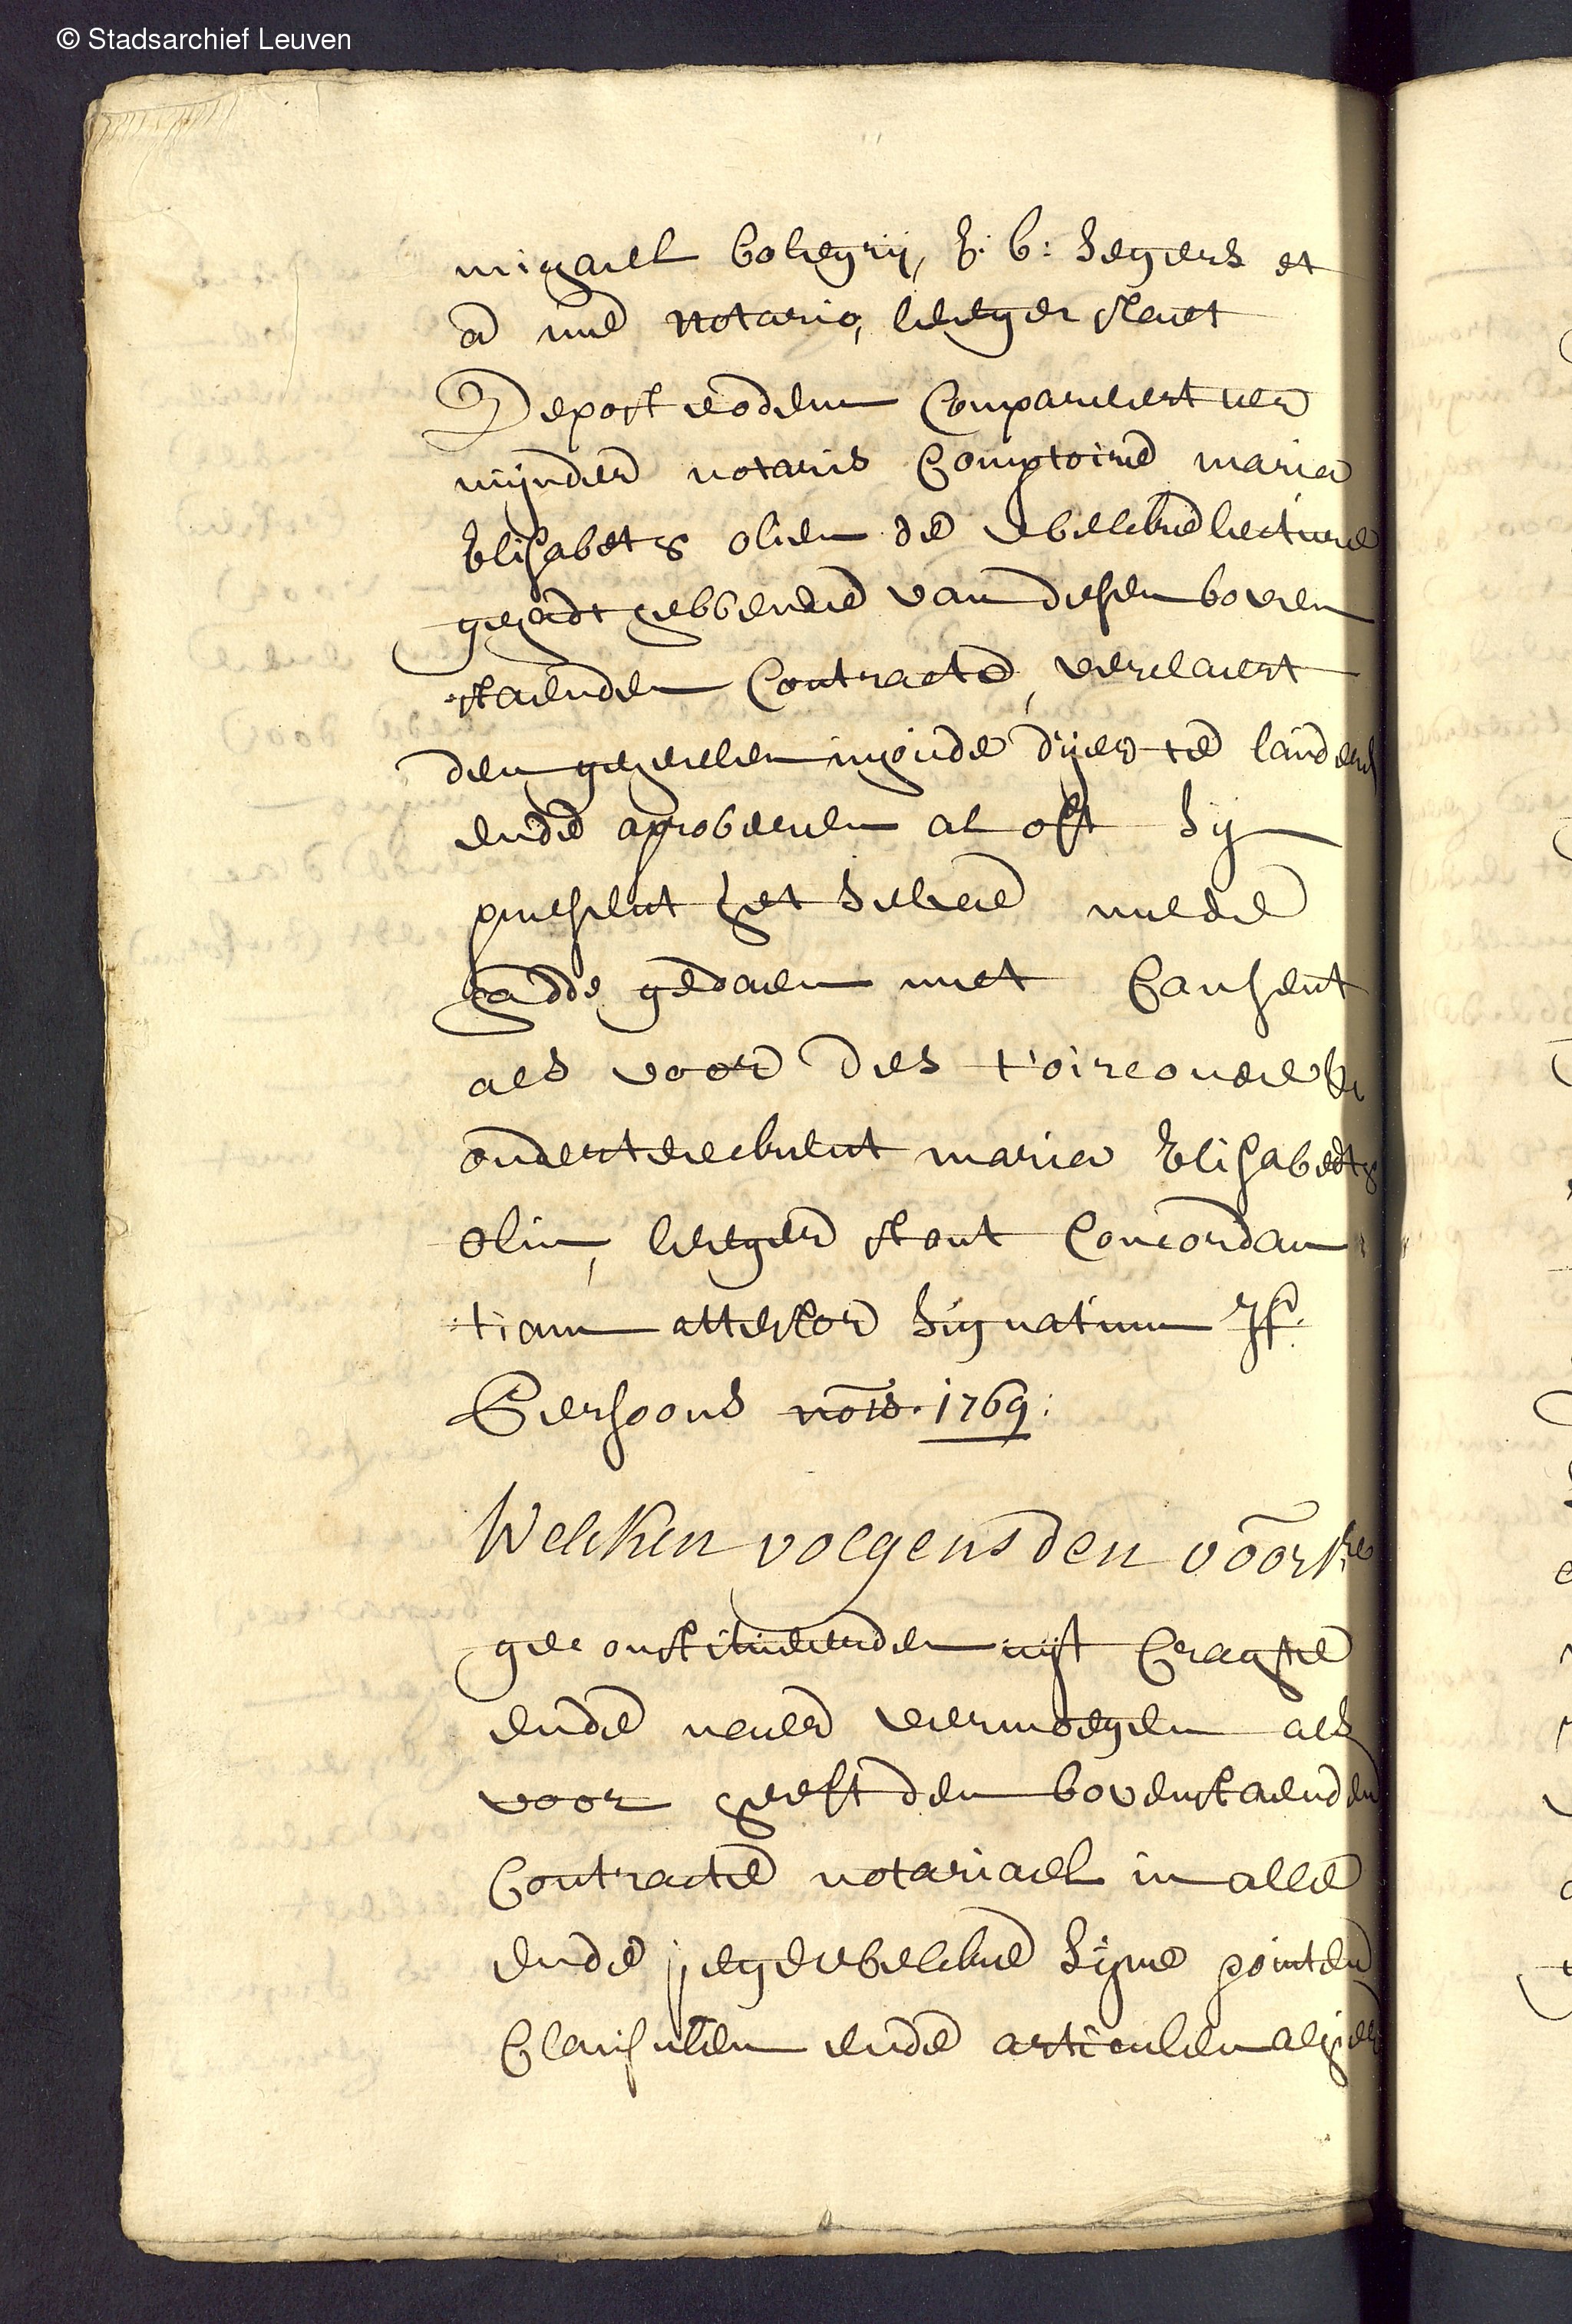 © Stadsarchief Leuven
migaiel Bollegrij, E: b: Segers et
a me notario, leeger stent
De post eodem Compareert ter
mijnder notaris Comptoire maria
Elisabeth olien de welcke lecture
gehadt hebbende van desen boven
staenden Contracte, verclaert
den geheelen inhoude dijer te lauderen
ende aproberen al oft sij
present het selve mede
hadde gedaen met Consent
als voor des t'oirconde is
onderteeckent maria Elisabeth
olin, leeger stont Concordan
tiam attestor Signatum
Persoons nots. 1769:
Welcken volgens den voors.
geconstitueerden uijt Crachte
ende naer vermoegen als
voor heeft den bovenstaenden
Contracte notariael in alle
ende jegewelcke sijne pointen
Clausulen ende articulen alhier